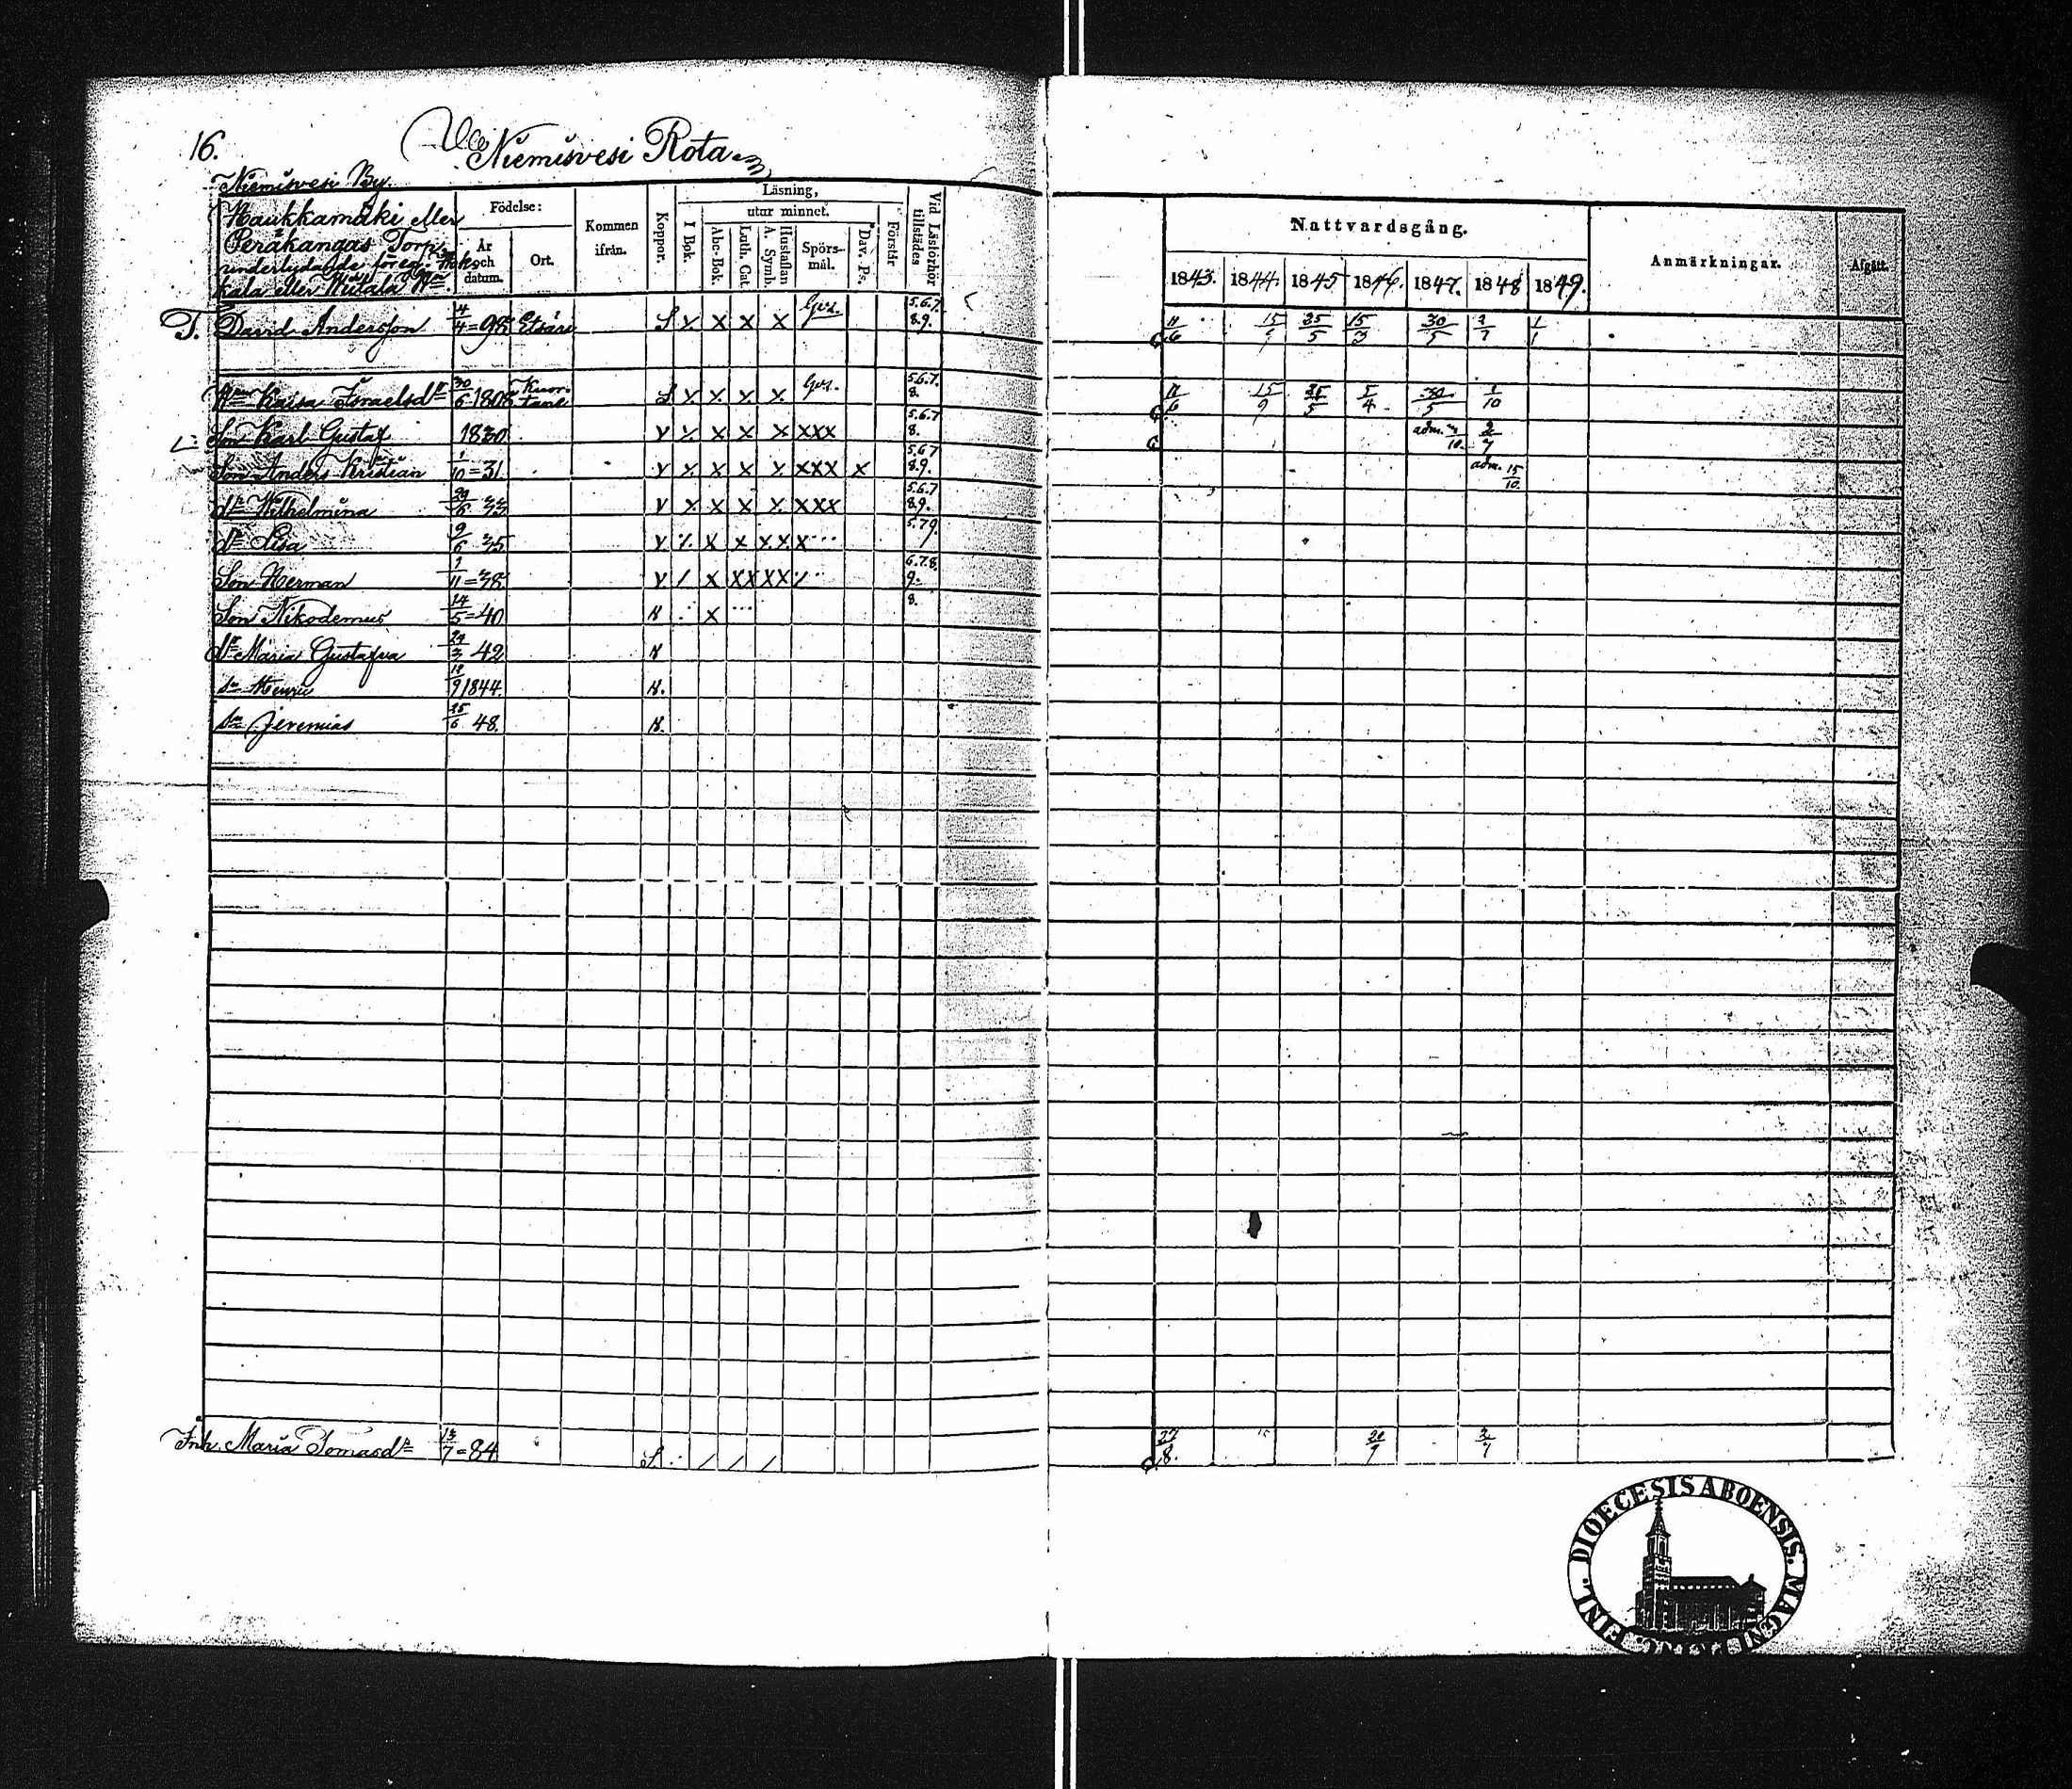 16.
Niemisvesi Rota
Niemisvesi By.
Haukkamäki eller
Peräkangas Torp
underlydande
eller
Födelse:
År och datum.
Ort.
Kommen ifrån.
Koppor.
Läsning,
I Bok.
utur minnet.
Abc-Bok.
Luth. Cat.
Hustaflan A. Symb.
Spörs-mål.
Dav. Ps.
Förstår
Vid Läsförhör tillstädes
Nattvardsgång.
1843. 1844. 1845 1846. 1847. 1848 1849.
Anmärkningar.
Afgått.
T. David Andersson 4/4 = 98 Etsäri S x x x x 5.6.7. 8.9. 11/6 15/9 25/5 15/3 30/5 2/7 1/1
Kaisa Israelsdr 30/6 1808 Kuortane S x x x x 5.6.7. 8. 11/6 15/9 25/5 5/4 30/5 1/10
Son Karl Gustaf 1830 v x x x x xxx 5.6.7 8. adm. 10. 2/7
Son Anders Kristian 1/10 = 31 v x x x x xxx x 5.6.7 8.9. adm. 15/10.
dr Wilhelmina 29/6 33 v x x x x xxx 5.6.7 8.9.
dr Lisa 9/6 35 v x x x x x 5.7.9.
Son Herman 1/11 = 38 v / x xx xx 6.7.8. 9.
Son Nikodemus 14/5 = 40 v x 8.
dr Maria Gustafva 24/3 42 v
Sn Henric 9 1844. v.
Sn Jeremias 6 48. v.
Inh. Maria Tomasdr 13/7 = 84 S / / / 27/8. 2/7
FINL. DIOECESIS ABOENSIS. MAGNI